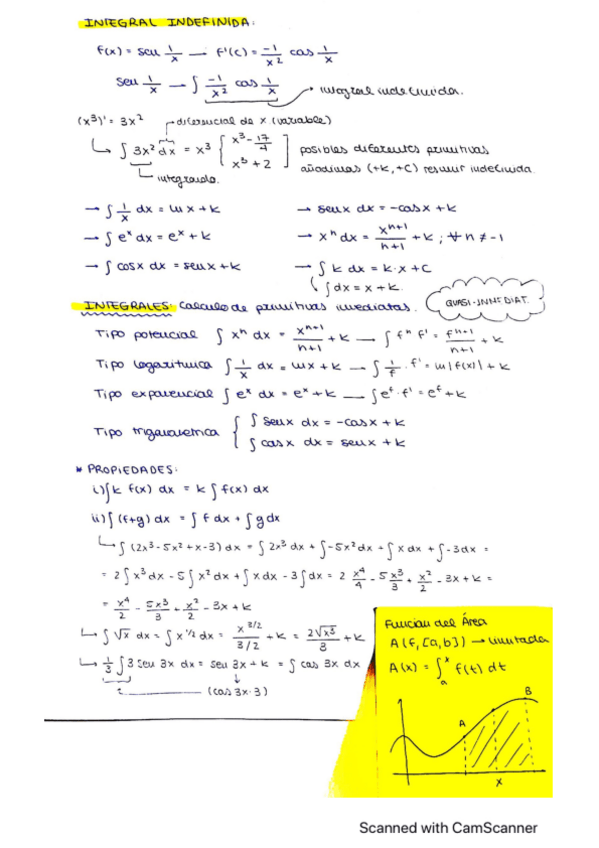 INTEGRAL INDEFINIDA:
f(x) = sen 1/x — f'(c) = -1/x² cos 1/x
sen 1/x — ∫ -1/x² cos 1/x → integral indefinida.
(x³)' = 3x² → diferencial de x (variable)
↳ ∫ 3x² dx = x³ { x³ - 17/4 posibles diferentes primitivas
x³ + 2 ] añadimos (+k, +c) resumir indefinida.
↳ integrando.
→ ∫ 1/x dx = ln x + k → sen x dx = -cos x + k
→ ∫ eˣ dx = eˣ + k → xⁿ dx = xⁿ⁺¹/n+1 + k ; ∀ n ≠ -1
→ ∫ cos x dx = sen x + k → ∫ k dx = k·x + C
∫ dx = x + k.
INTEGRALES: Calculo de primitivas inmediatas. QUASI-INMEDIAT.
Tipo potencial ∫ xⁿ dx = xⁿ⁺¹/n+1 + k — ∫ fⁿ f' = fⁿ⁺¹/n+1 + k
Tipo logarítmica ∫ 1/x dx = ln x + k — ∫ 1/f · f' = ln |f(x)| + k
Tipo exponencial ∫ eˣ dx = eˣ + k — ∫ eᶠ · f' = eᶠ + k
Tipo trigonometrica { ∫ sen x dx = -cos x + k
∫ cos x dx = sen x + k
* PROPIEDADES:
i) ∫ k f(x) dx = k ∫ f(x) dx
ii) ∫ (f+g) dx = ∫ f dx + ∫ g dx
↳ ∫ (2x³ - 5x² + x - 3) dx = ∫ 2x³ dx + ∫ -5x² dx + ∫ x dx + ∫ -3 dx =
= 2 ∫ x³ dx - 5 ∫ x² dx + ∫ x dx - 3 ∫ dx = 2 x⁴/4 - 5x³/3 + x²/2 - 3x + k =
= x⁴/2 - 5x³/3 + x²/2 - 3x + k
↳ ∫ √x dx = ∫ x^1/2 dx = x^3/2 / 3/2 + k = 2√x³/3 + k
↳ 1/3 ∫ 3 sen 3x dx = sen 3x + k = ∫ cos 3x dx
(cos 3x · 3)
Funcion del Área
A (f, [a, b]) → limitada
A(x) = ∫ₐˣ f(t) dt
A
B
x
Scanned with CamScanner